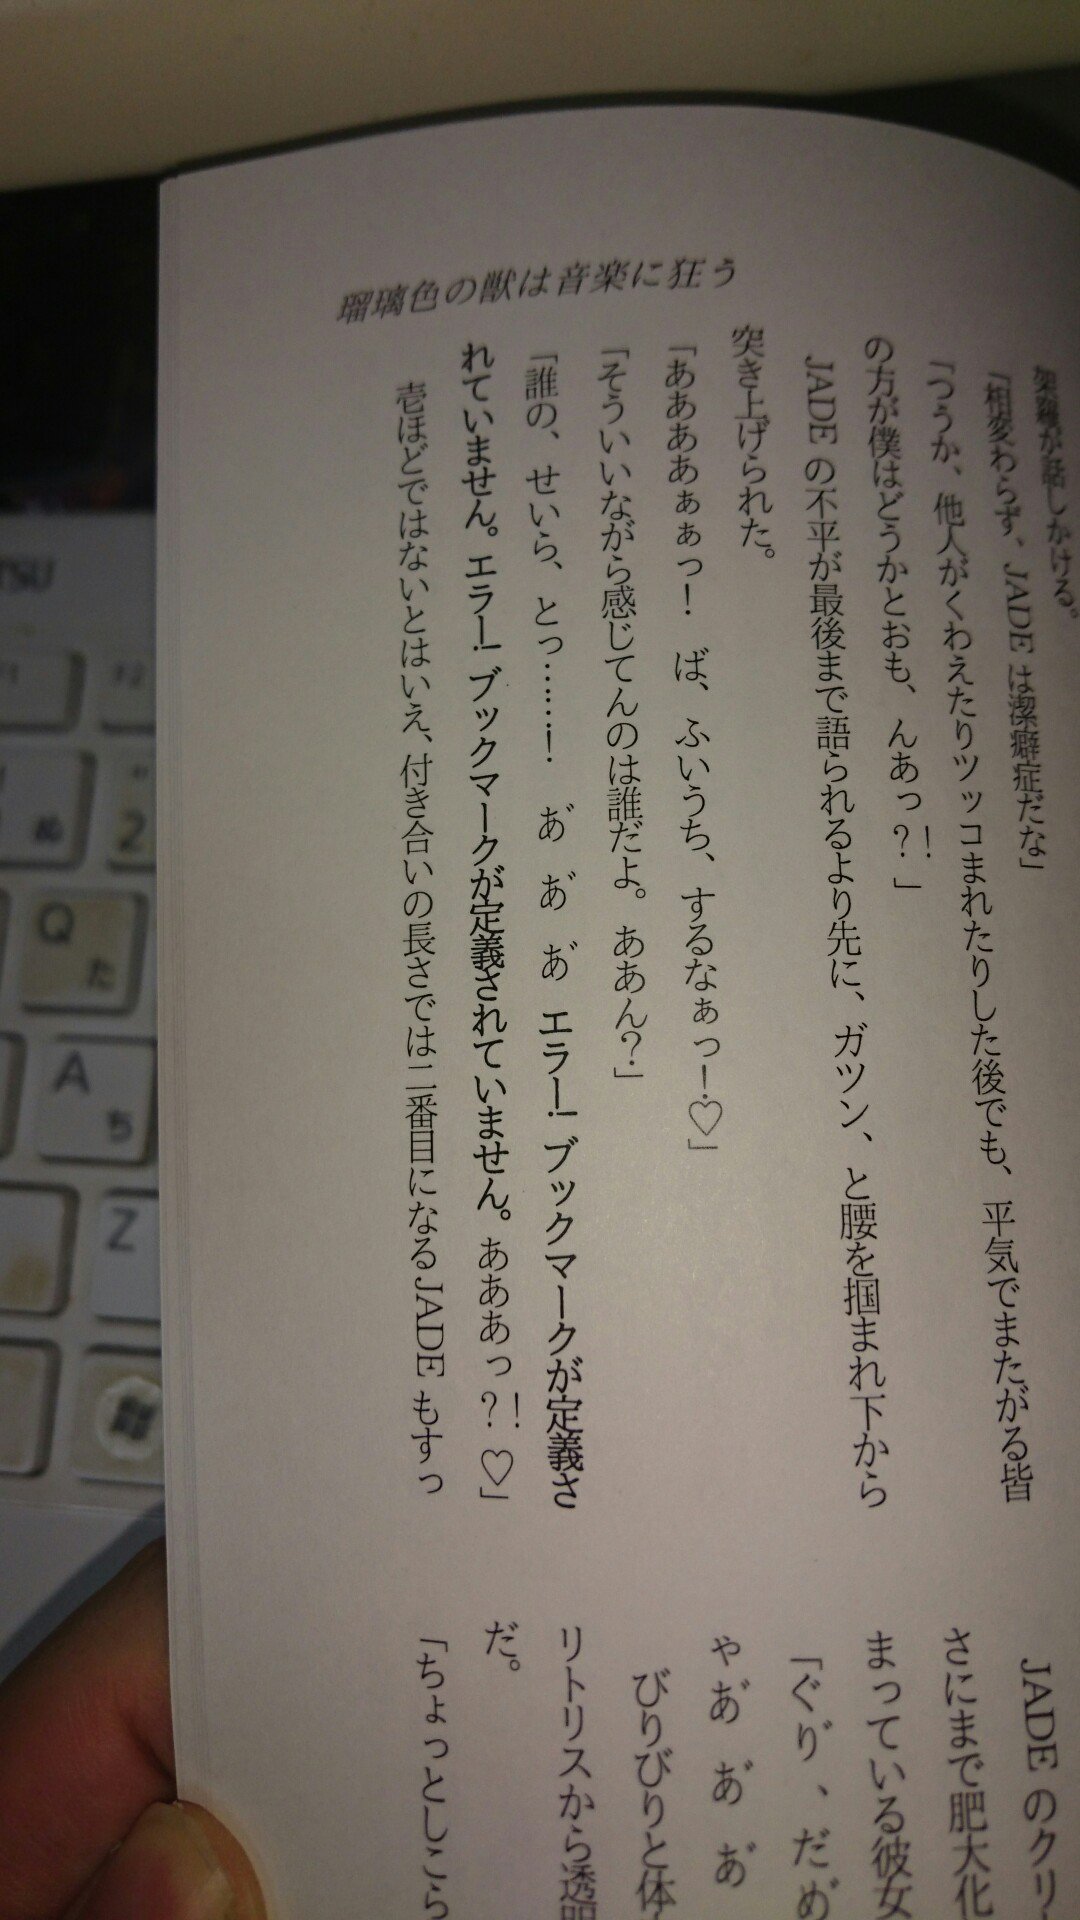 架雅が話しかける。
「相変わらず、JADE は潔癖症だな」
「つうか、他人がくわえたりツッコまれたりした後でも、平気でまたがる皆
の方が僕はどうかとおも、んあっ?!」
JADE の不平が最後まで語られるより先に、ガツン、と腰を掴まれ下から
突き上げられた。
「ああああぁぁっ! ば、ふいうち、するなぁっ!♡」
「そういいながら感じてんのは誰だよ。ああん?」
「誰の、せいら、とっ……! あ゛ あ゛ あ゛ エラー! ブックマークが定義さ
れていません。エラー! ブックマークが定義されていません。あああっ?!♡」
壱ほどではないとはいえ、付き合いの長さでは二番目になるJADE もすっ
瑠璃色の獣は音楽に狂う
JADE のクリ
さにまで肥大化
まっている彼女
「ぐり゛、だめ
ゃあ゛ あ゛ あ゛
びりびりと体
リトリスから透明
だ。
「ちょっとしこら
TSU
F1
F2
ぬ
2
Q
た
A
ち
Z